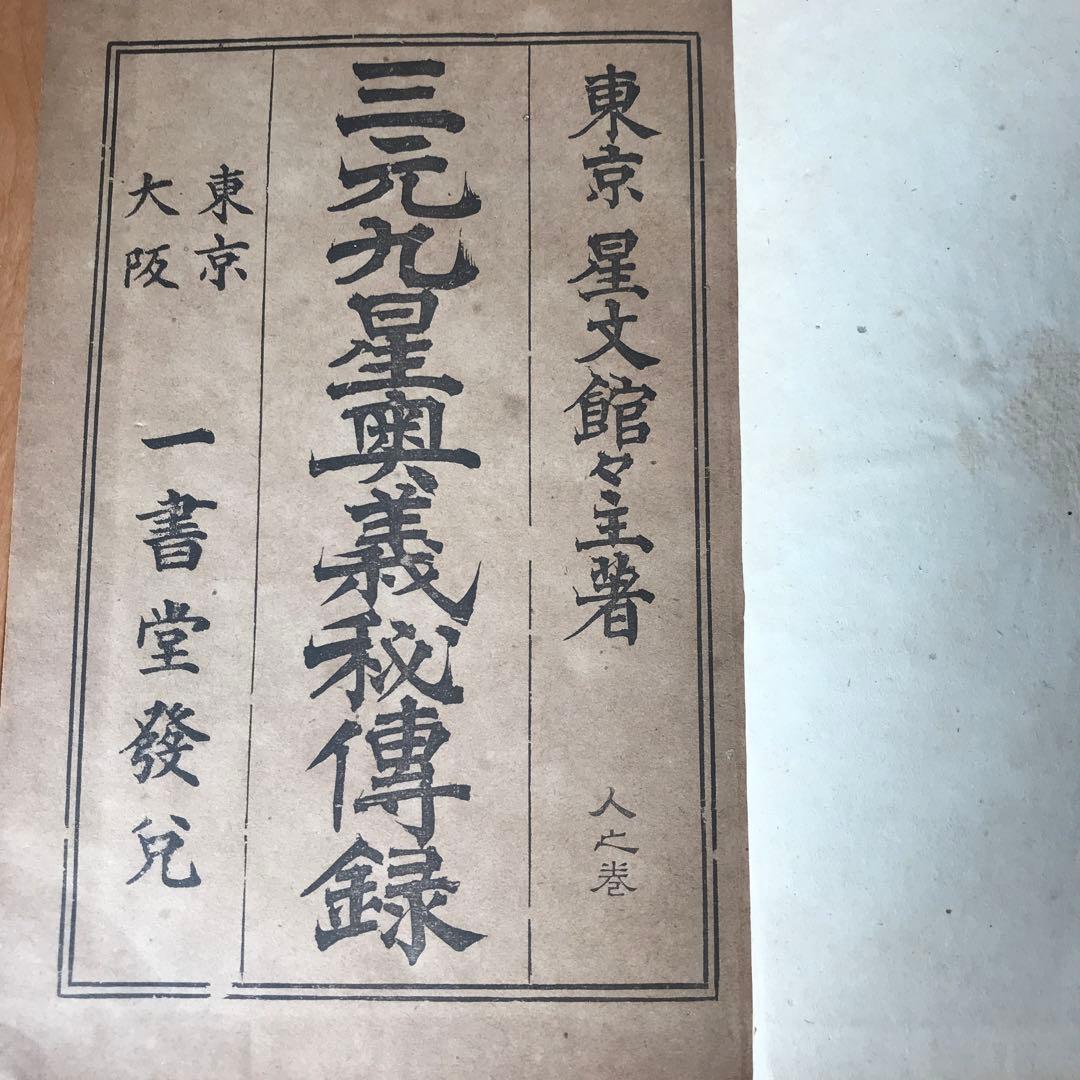 東京 星文館々主著 人之巻
三元九星奥義秘傳録
東京
大阪
一書堂發兌